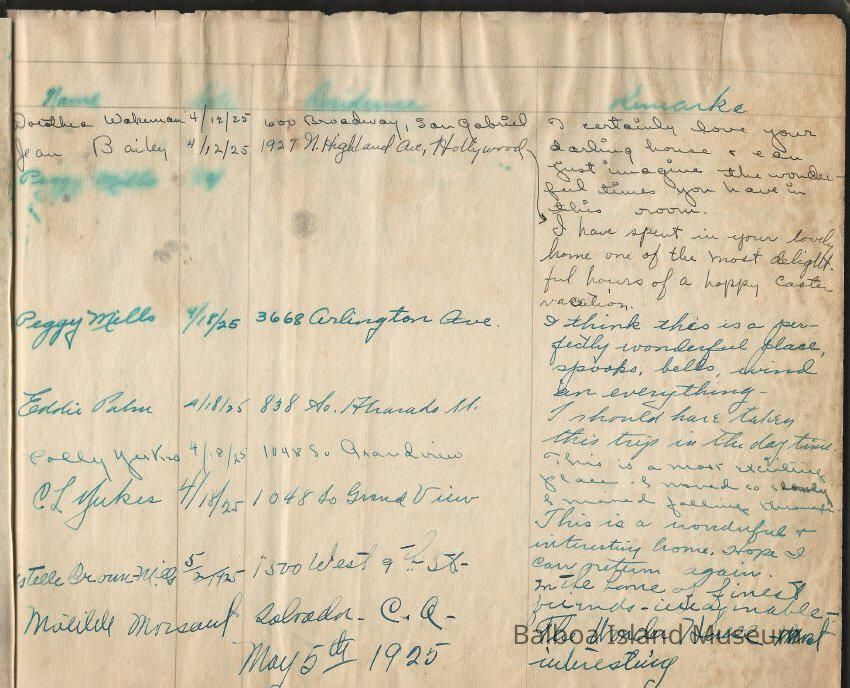 Name Date Residence Remarks
Dorothea Wakeman 4/12/25 600 Broadway, San Gabriel I certainly love your
darling house & can
just imagine the wonder-
ful times you have in
this room.
Jean Bailey 4/12/25 1927 N. Highland Ave, Hollywood
I have spent in your lovely
home one of the most delight-
ful hours of a happy easter
vacation.
Peggy Mills
Peggy Mills 4/18/25 3668 Arlington Ave. I think this is a per-
fectly wonderful place,
spooks, bells, wind
an everything-
Eddie Palm 4/18/25 838 So. Alvarado St. I should have taken
this trip in the day time.
Polly Yerkes 4/18/25 1048 So Grandview This is a most exciting
place - I moved so
I missed falling
C L Yerkes 4/18/25 1048 So Grand View
This is a wonderful &
interesting home. Hope I
can return again.
Estelle Brown Mills 1500 West 9th St-
In the home of finest
friends-
Salvador - C. A- The House most
May 5th 1925 interesting
Balboa Island Museum